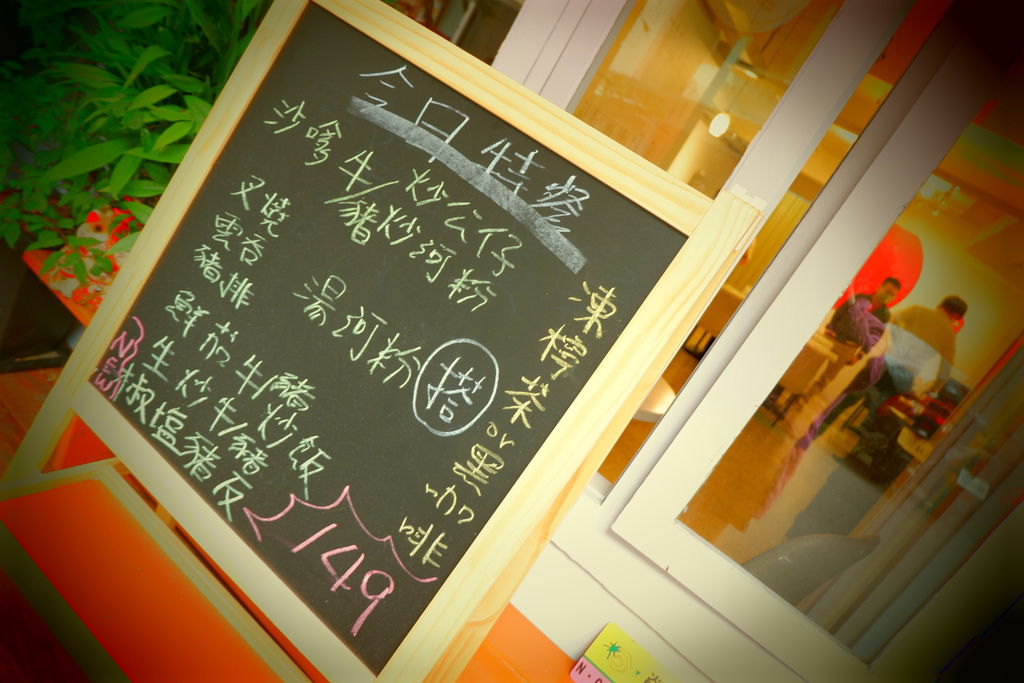 今日特餐
沙嗲牛/豬炒公仔
炒河粉
叉燒
雲吞
豬排
湯河粉
搭
凍檸茶or黑咖啡
鮮茄牛/豬炒飯
生炒牛/豬飯
NEW
椒塩豬
149